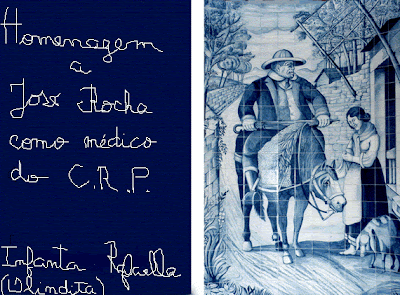 Homenagem
a
José Rocha
como médico
do C.R.P.
Infanta Rafaella
(Ulindita)